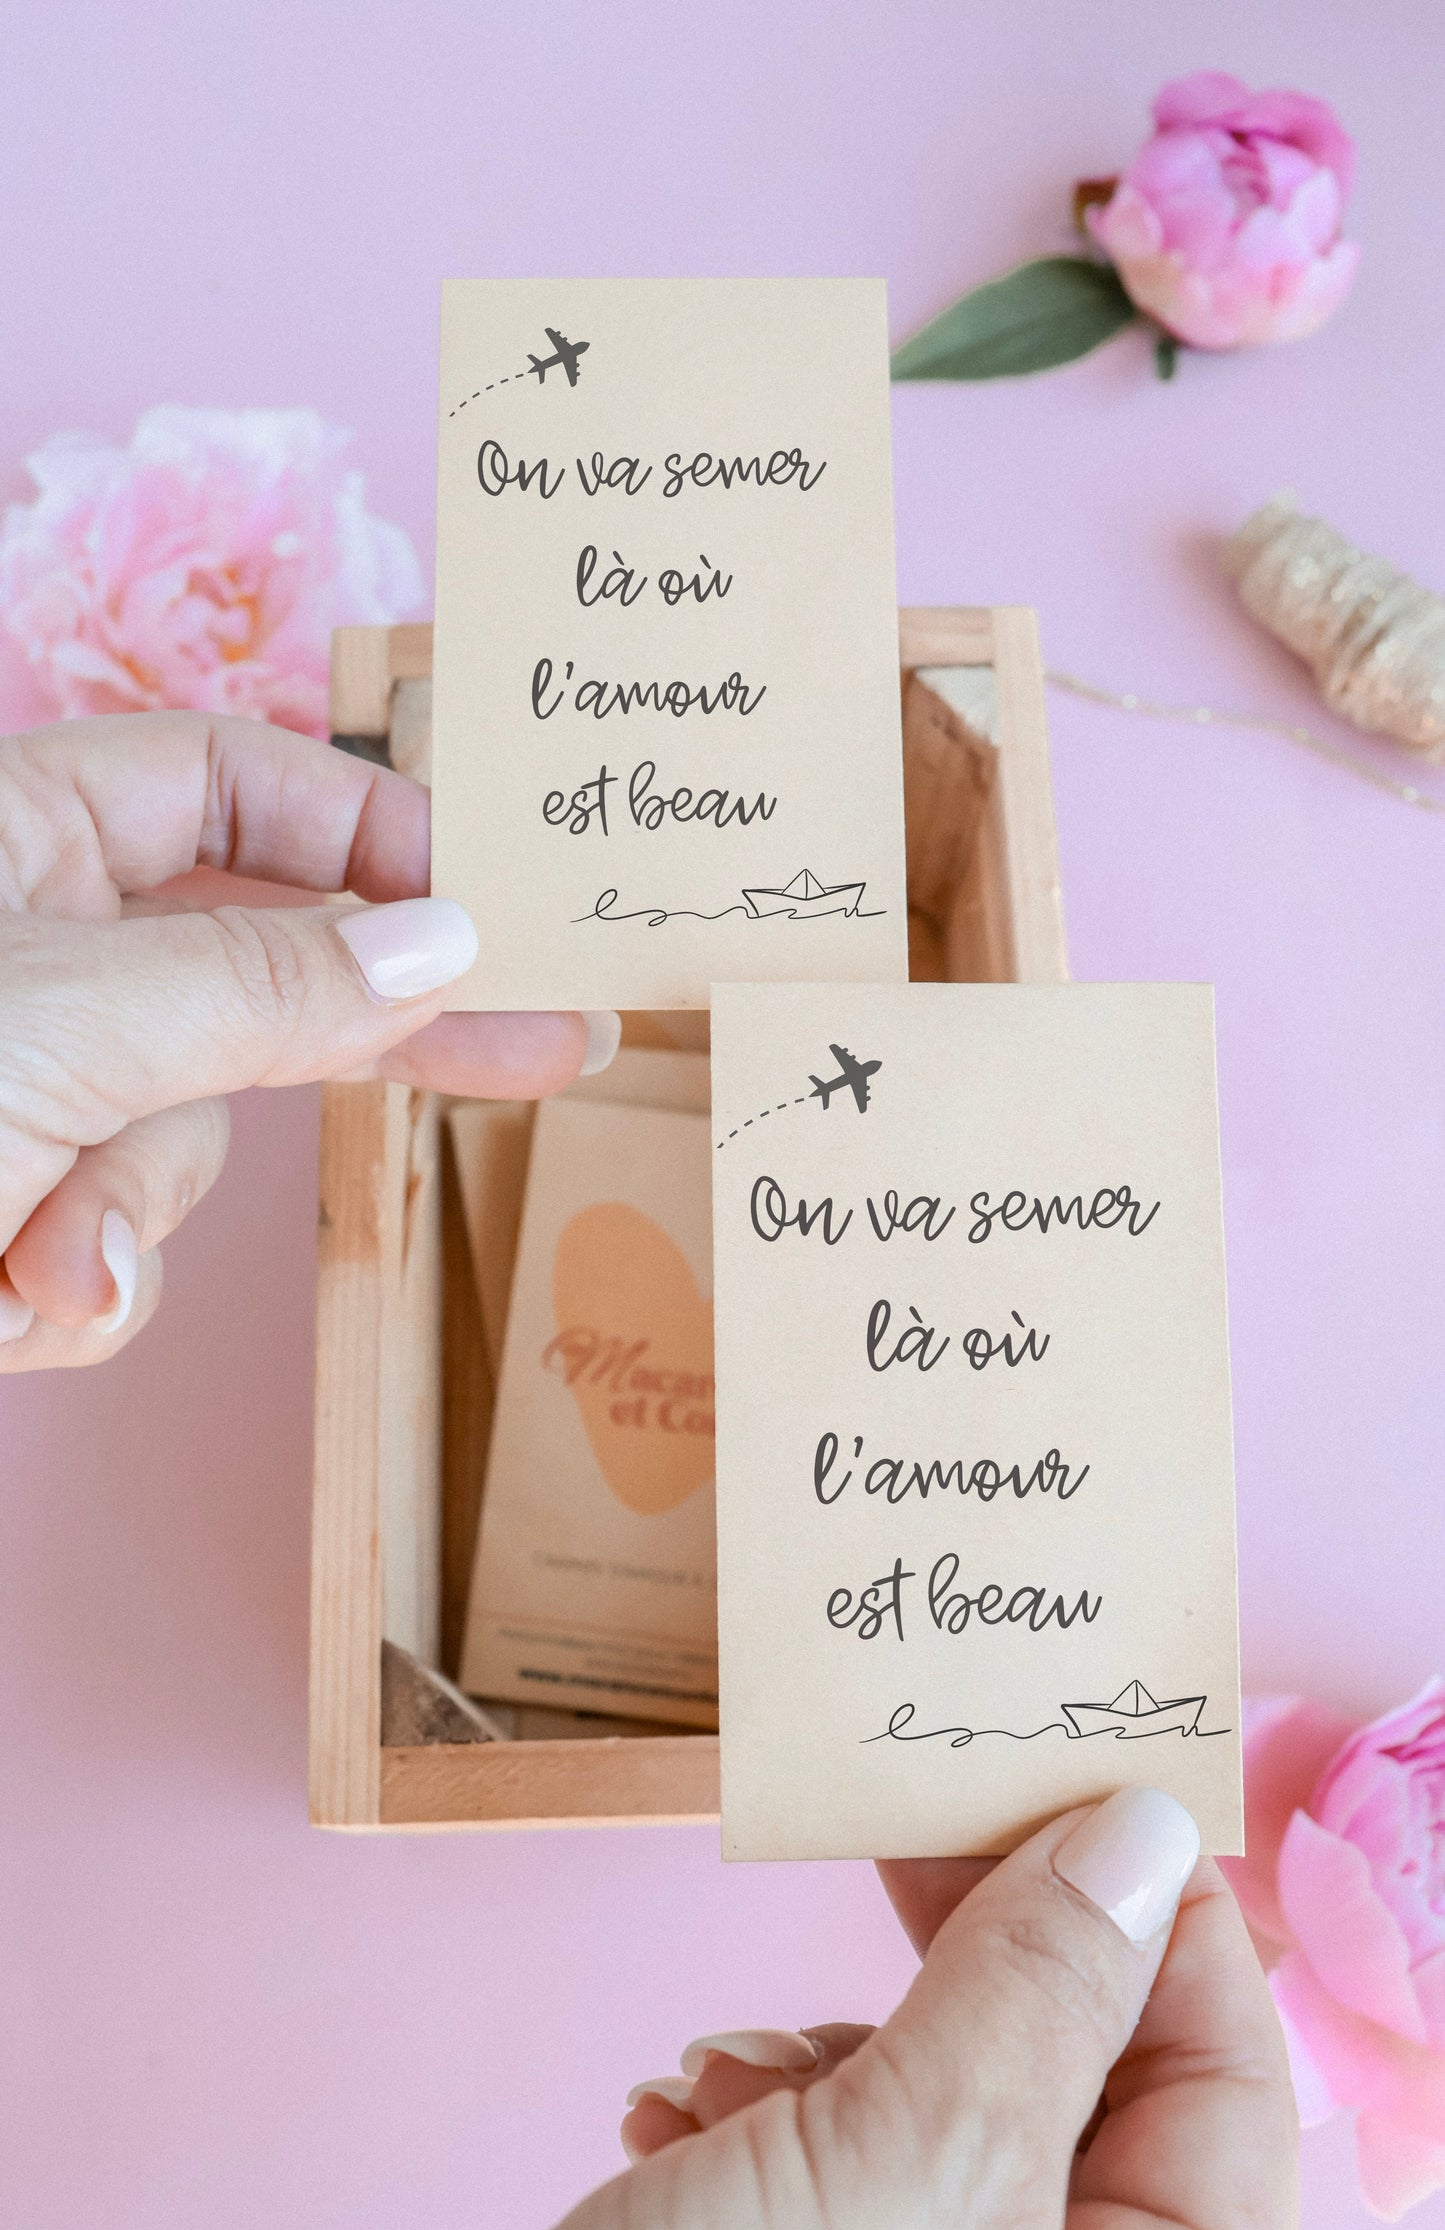 On va semer
là où
l'amour
est beau
On va semer
là où
l'amour
est beau
et